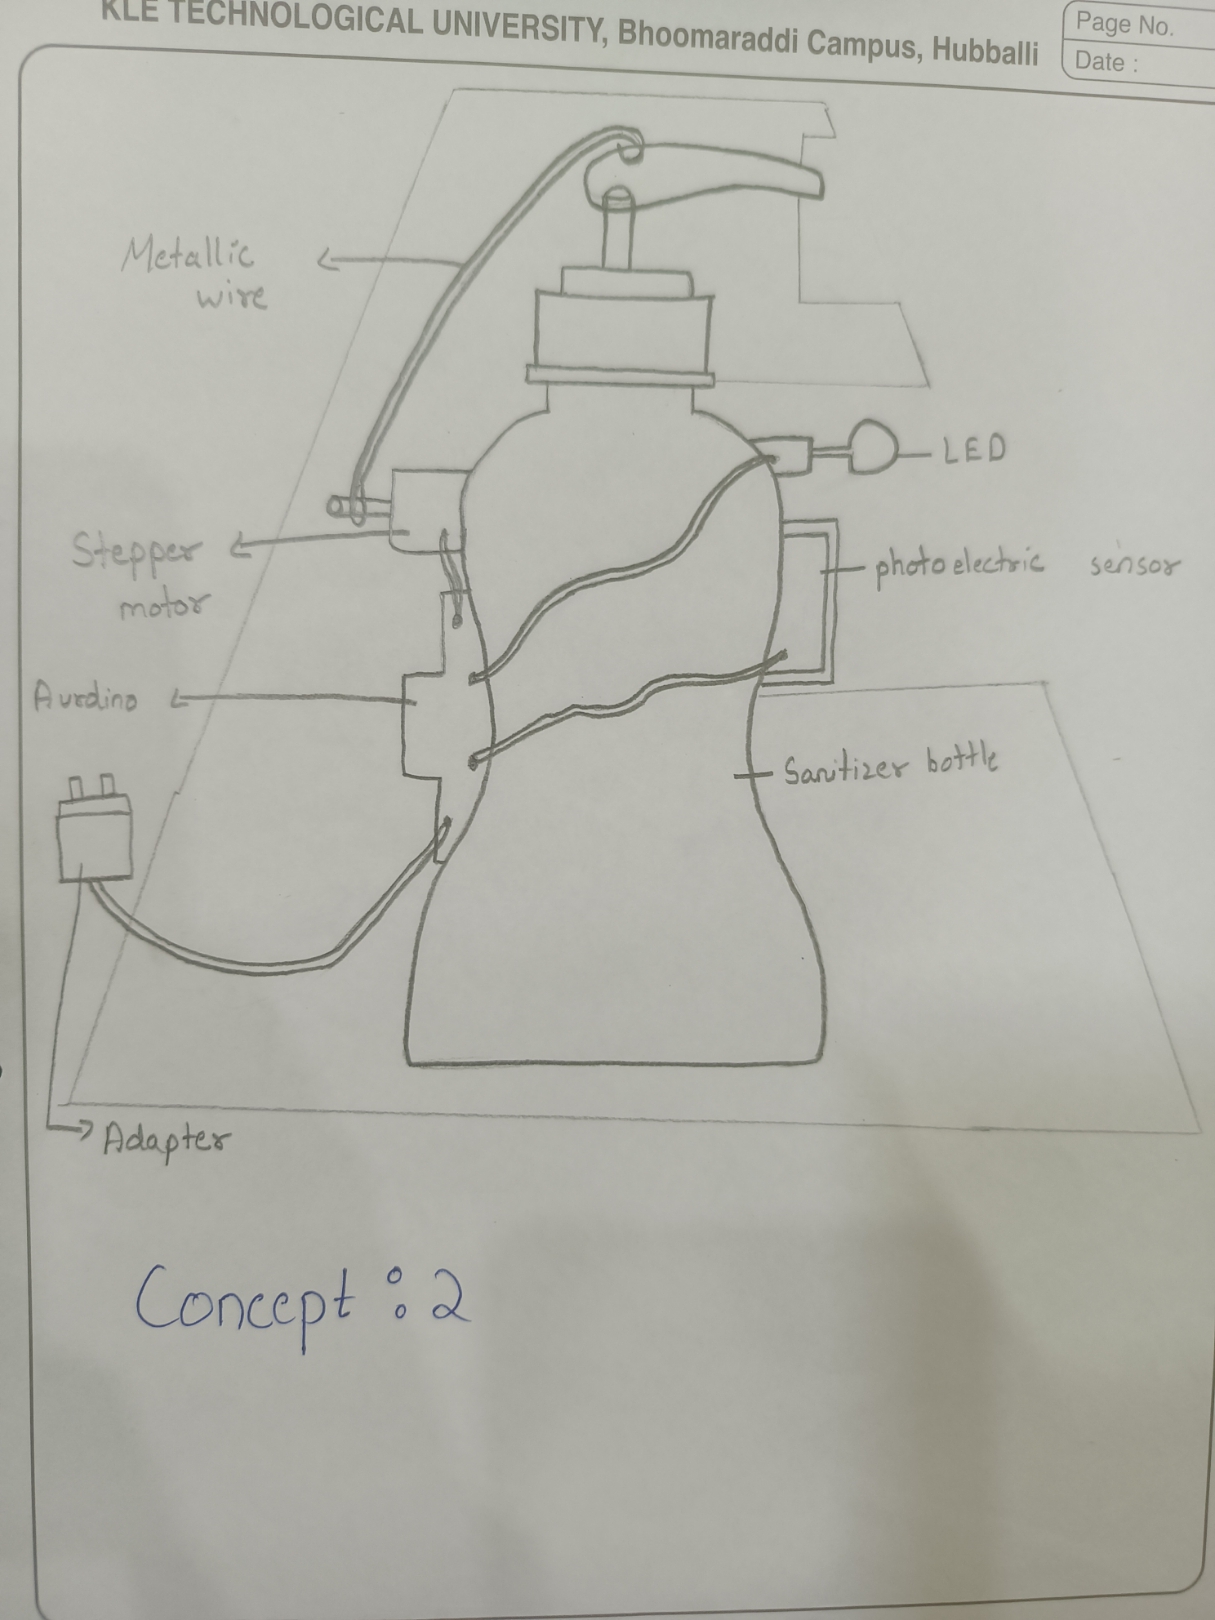 KLE TECHNOLOGICAL UNIVERSITY, Bhoomaraddi Campus, Hubballi
Page No.
Date :
Metallic
wire
LED
Stepper
motor
photoelectric sensor
Aurdino
Sanitizer bottle
Adapter
Concept : 2